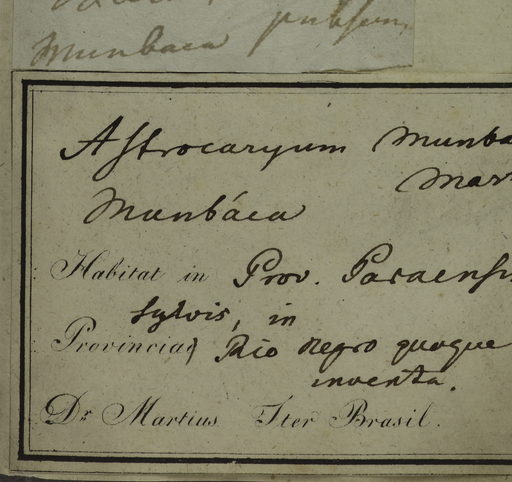 Munbaca pubsum
Astrocaryum Munba
Mar
Munbáca
Habitat in Prov. Paraensi
sylvis, in
Provincia Rio Negro quoque
inventa.
Dr Martius Iter Brasil.